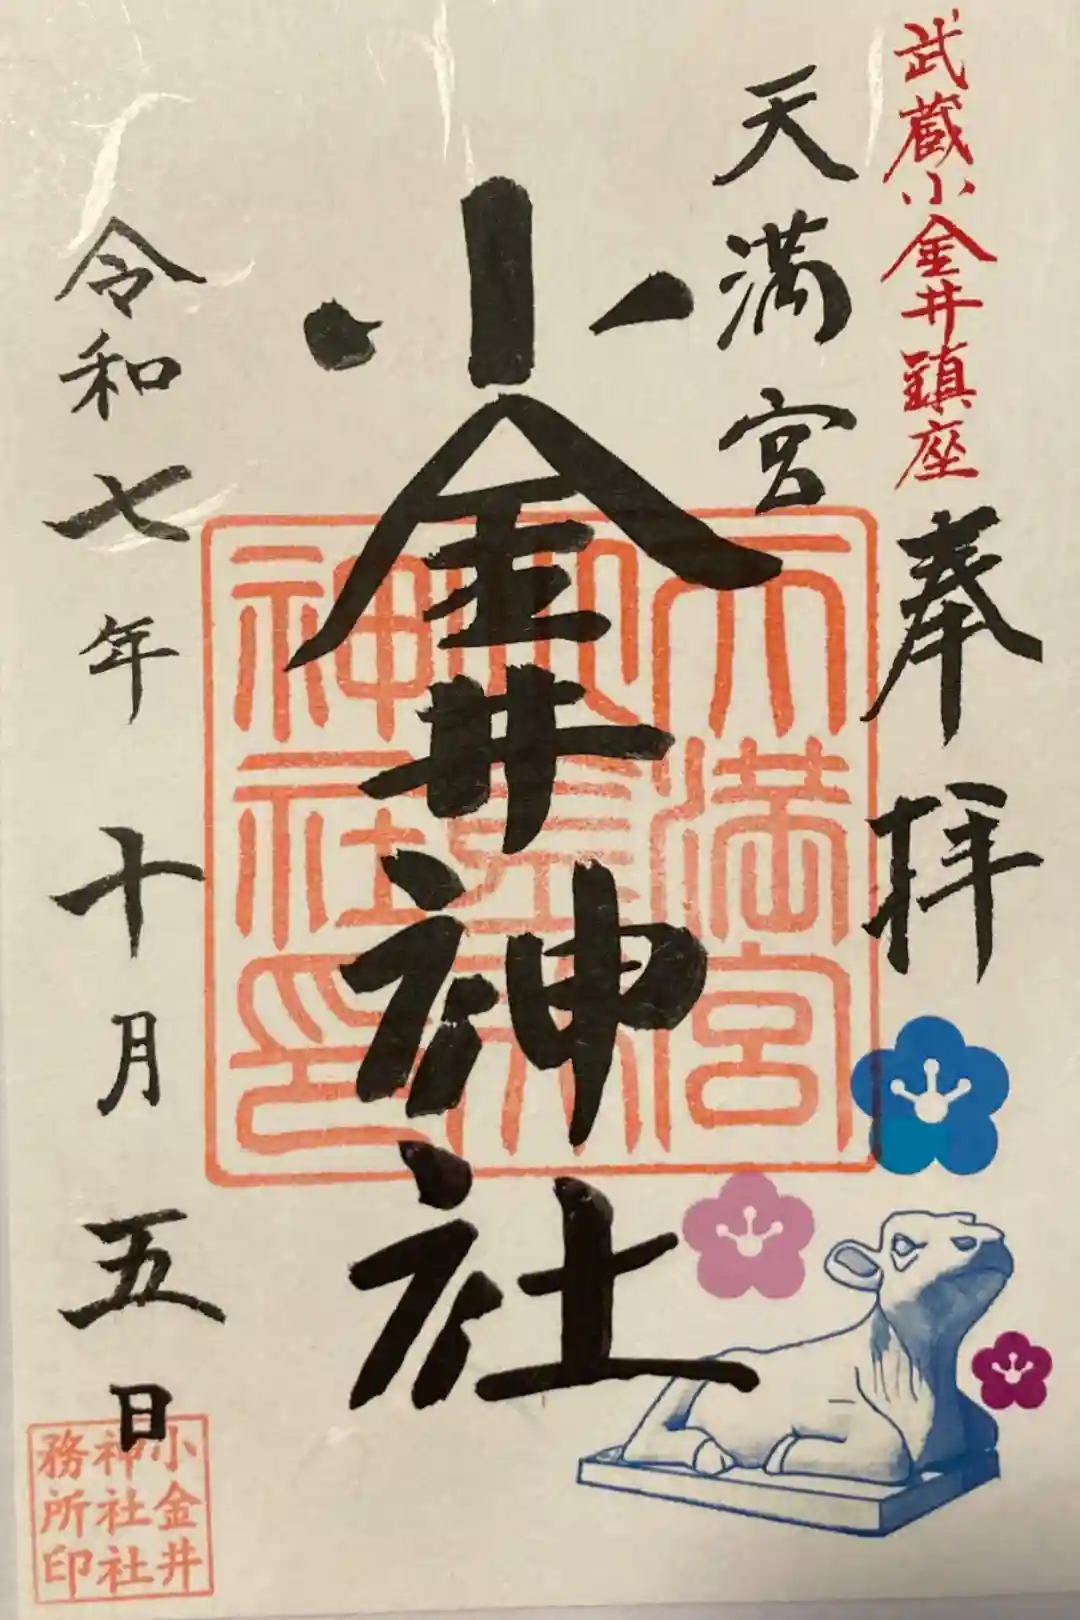 武蔵小金井鎮座
奉拝
天満宮
小金井神社
令和七年十月五日
天満宮
神社印
小金井
神社社
務所印